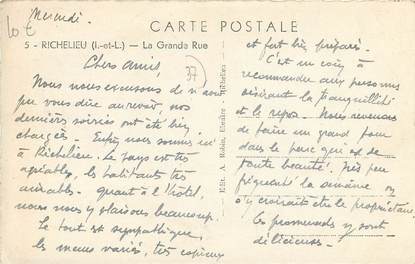 Mercredi.
10 €
CARTE POSTALE
5 - RICHELIEU (I.-et-L.) — La Grande Rue
37
Chers amis,
Nous nous excusons de n'avoir
pu vous dire au revoir, nos
dernières soirées ont été bien
chargées. Enfin nous sommes ici
à Richelieu. Le pays est très
agréable, les habitants très
aimables. Quant à l'hôtel,
nous nous y plaisons beaucoup.
Le tout est sympathique,
les menus variés, très copieux
Edit. A. Robin, Richelieu
et fort bien préparés.
C'est un coin à
recommander aux personnes
désirant la tranquillité
et le repos. Nous revenons
de faire un grand tour
dans le parc qui est de
toute beauté. Très peu
fréquenté la semaine on
s'y croirait être le propriétaire.
Les promenades y sont
délicieuses.